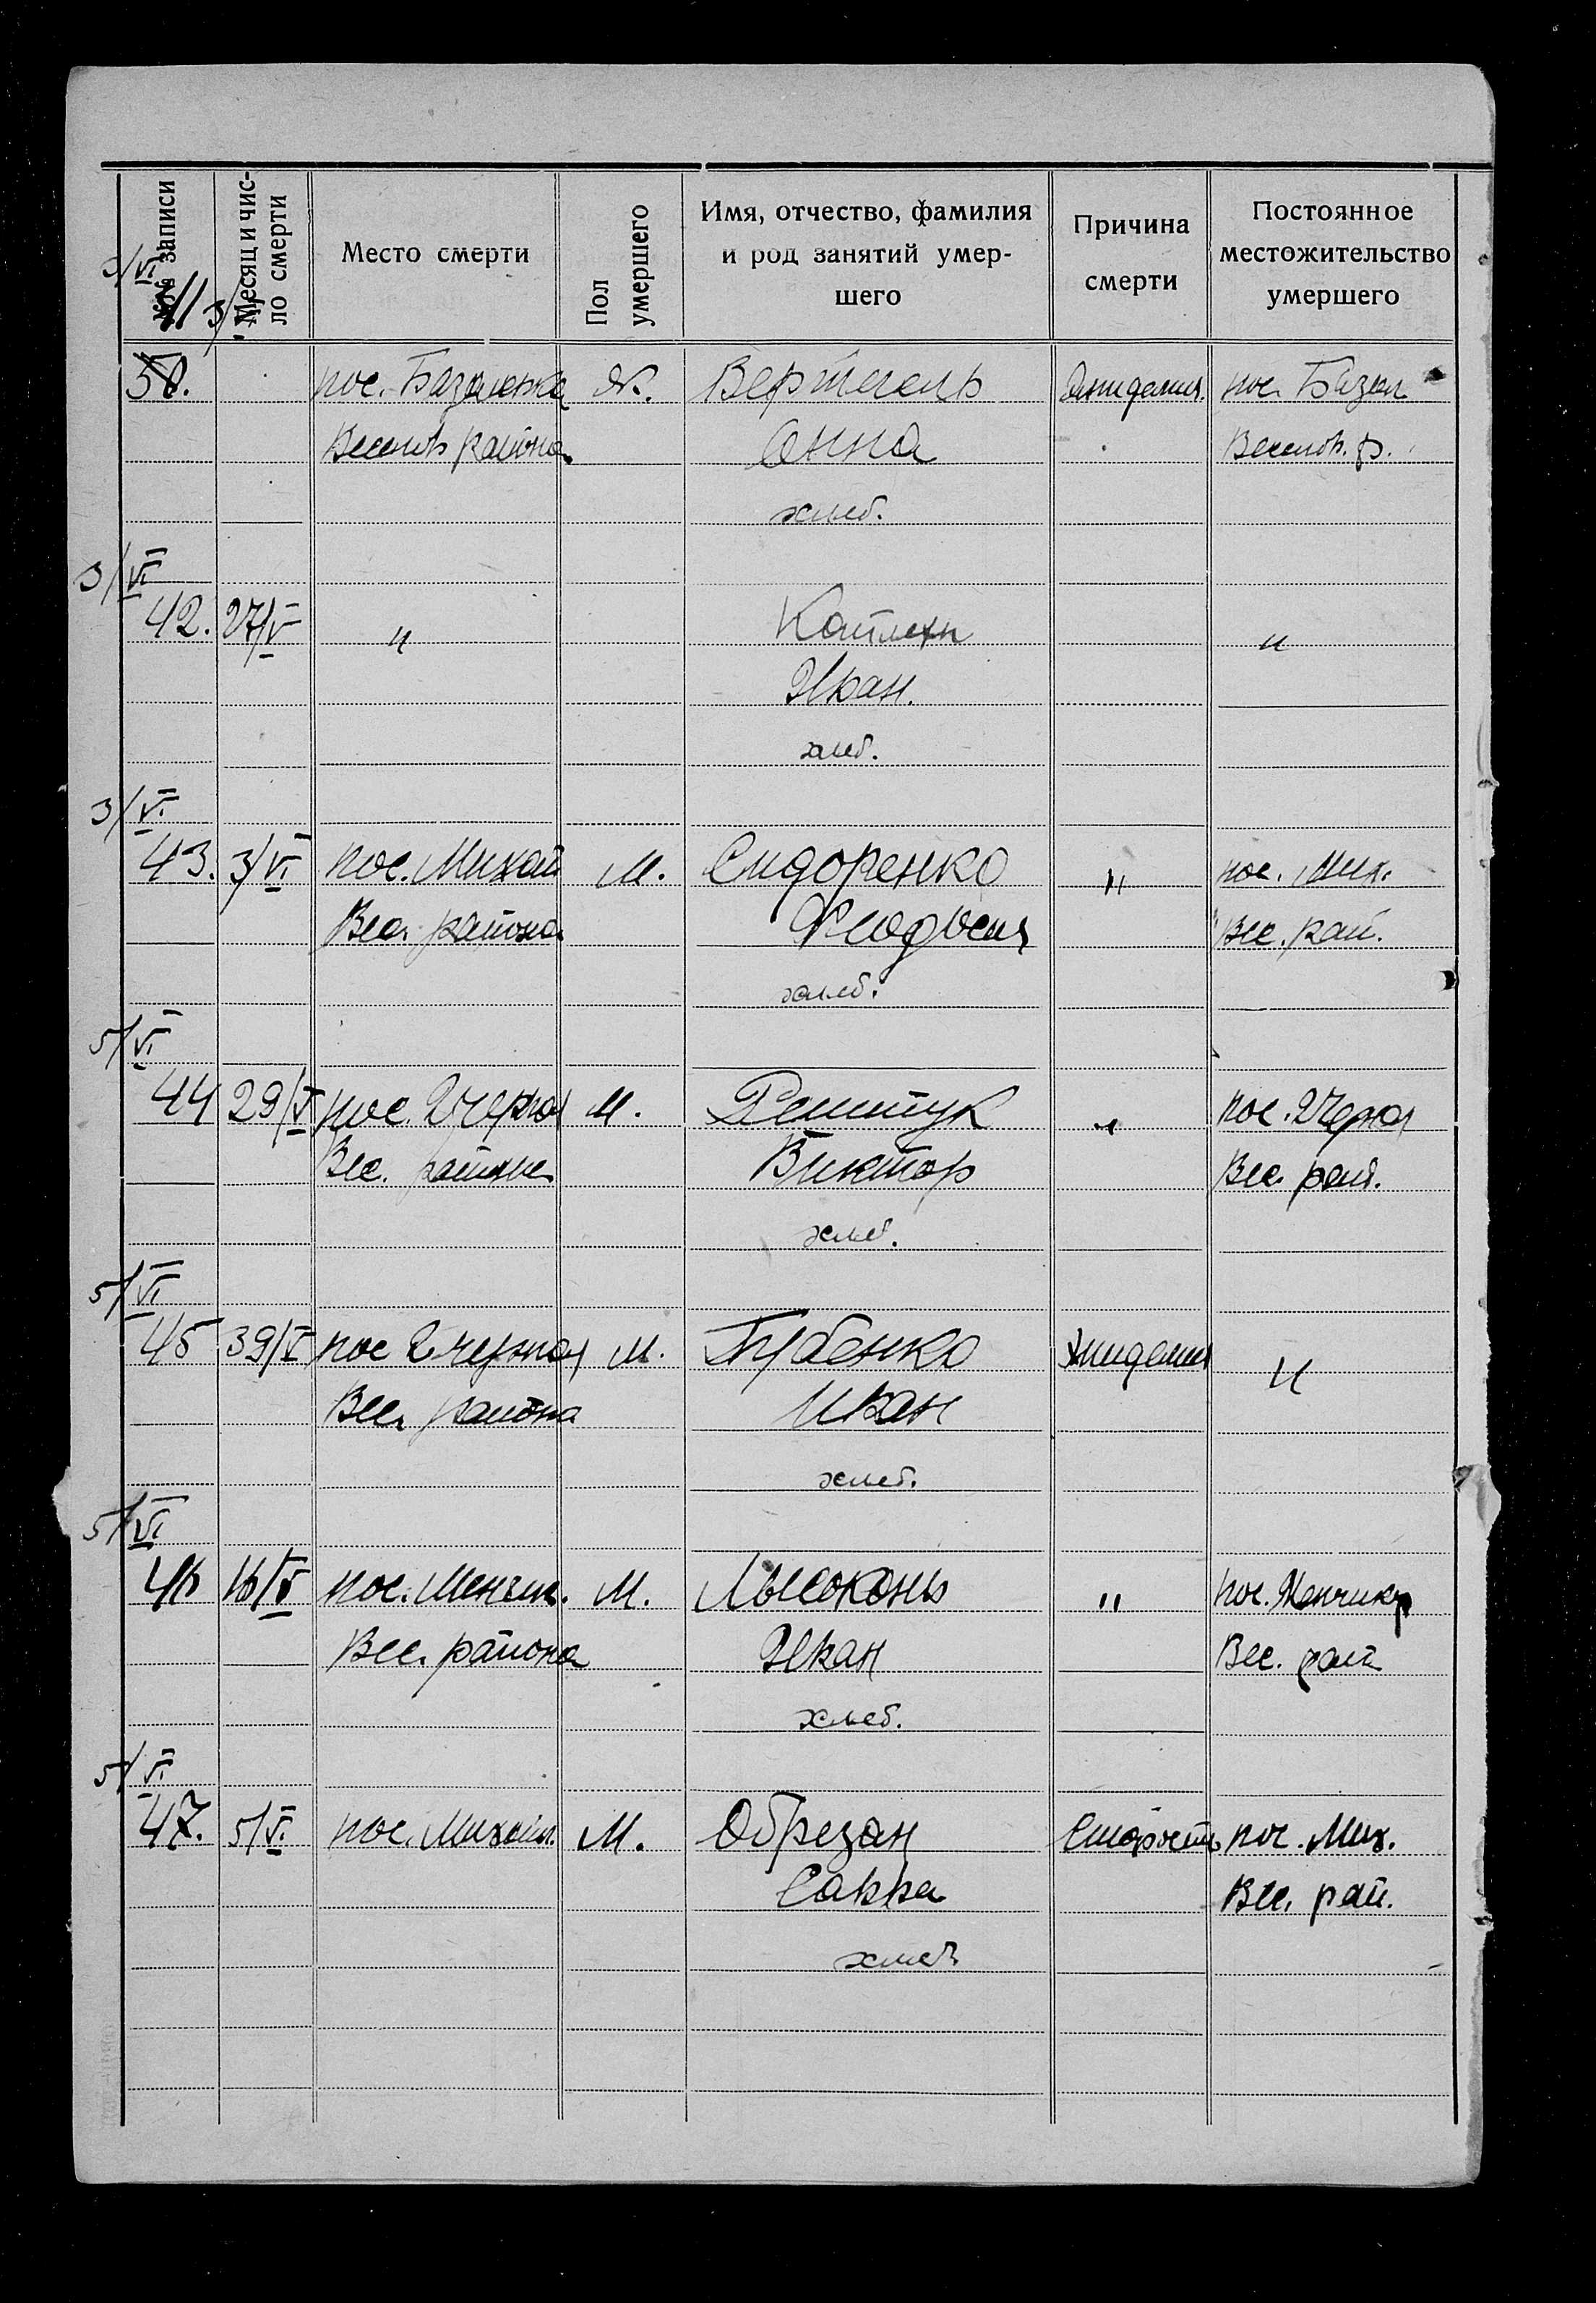 №№ записи
Месяц и чис-
ло смерти
Место смерти
Пол
умершего
Имя, отчество, фамилия
и род занятий умер-
шего
Причина
смерти
Постоянное
местожительство
умершего
3/VI
пос. Ж. Вертгель Эпидемия. пос. Базал
Веселов района Анна Веселов. р.
хлеб.
3/VI
42. 27/V " "
Иван.
хлеб.
3/VI
43. 3/VI пос. Михай М. Сидоренко " пос. Мих.
Вес. района Феодосия Вес. рай.
хлеб.
5/VI
44 29/V пос. 2 Черная М. " пос. 2 Черная
Вес. района Виктор Вес. рай.
хлеб.
5/VI
45 39/V пос 2 черная М. Губенко Эпидемия "
Вес. района Иван
хлеб.
5/VI
46 16/V пос. Менчик. М. Лысоконь " пос. Менчикр
Вес. района Иван Вес. рай
хлеб.
5/VI
47. 5/VI. пос. Михайл. М. Обрезан Старость пос. Мих.
Савва Вес. рай.
хлеб